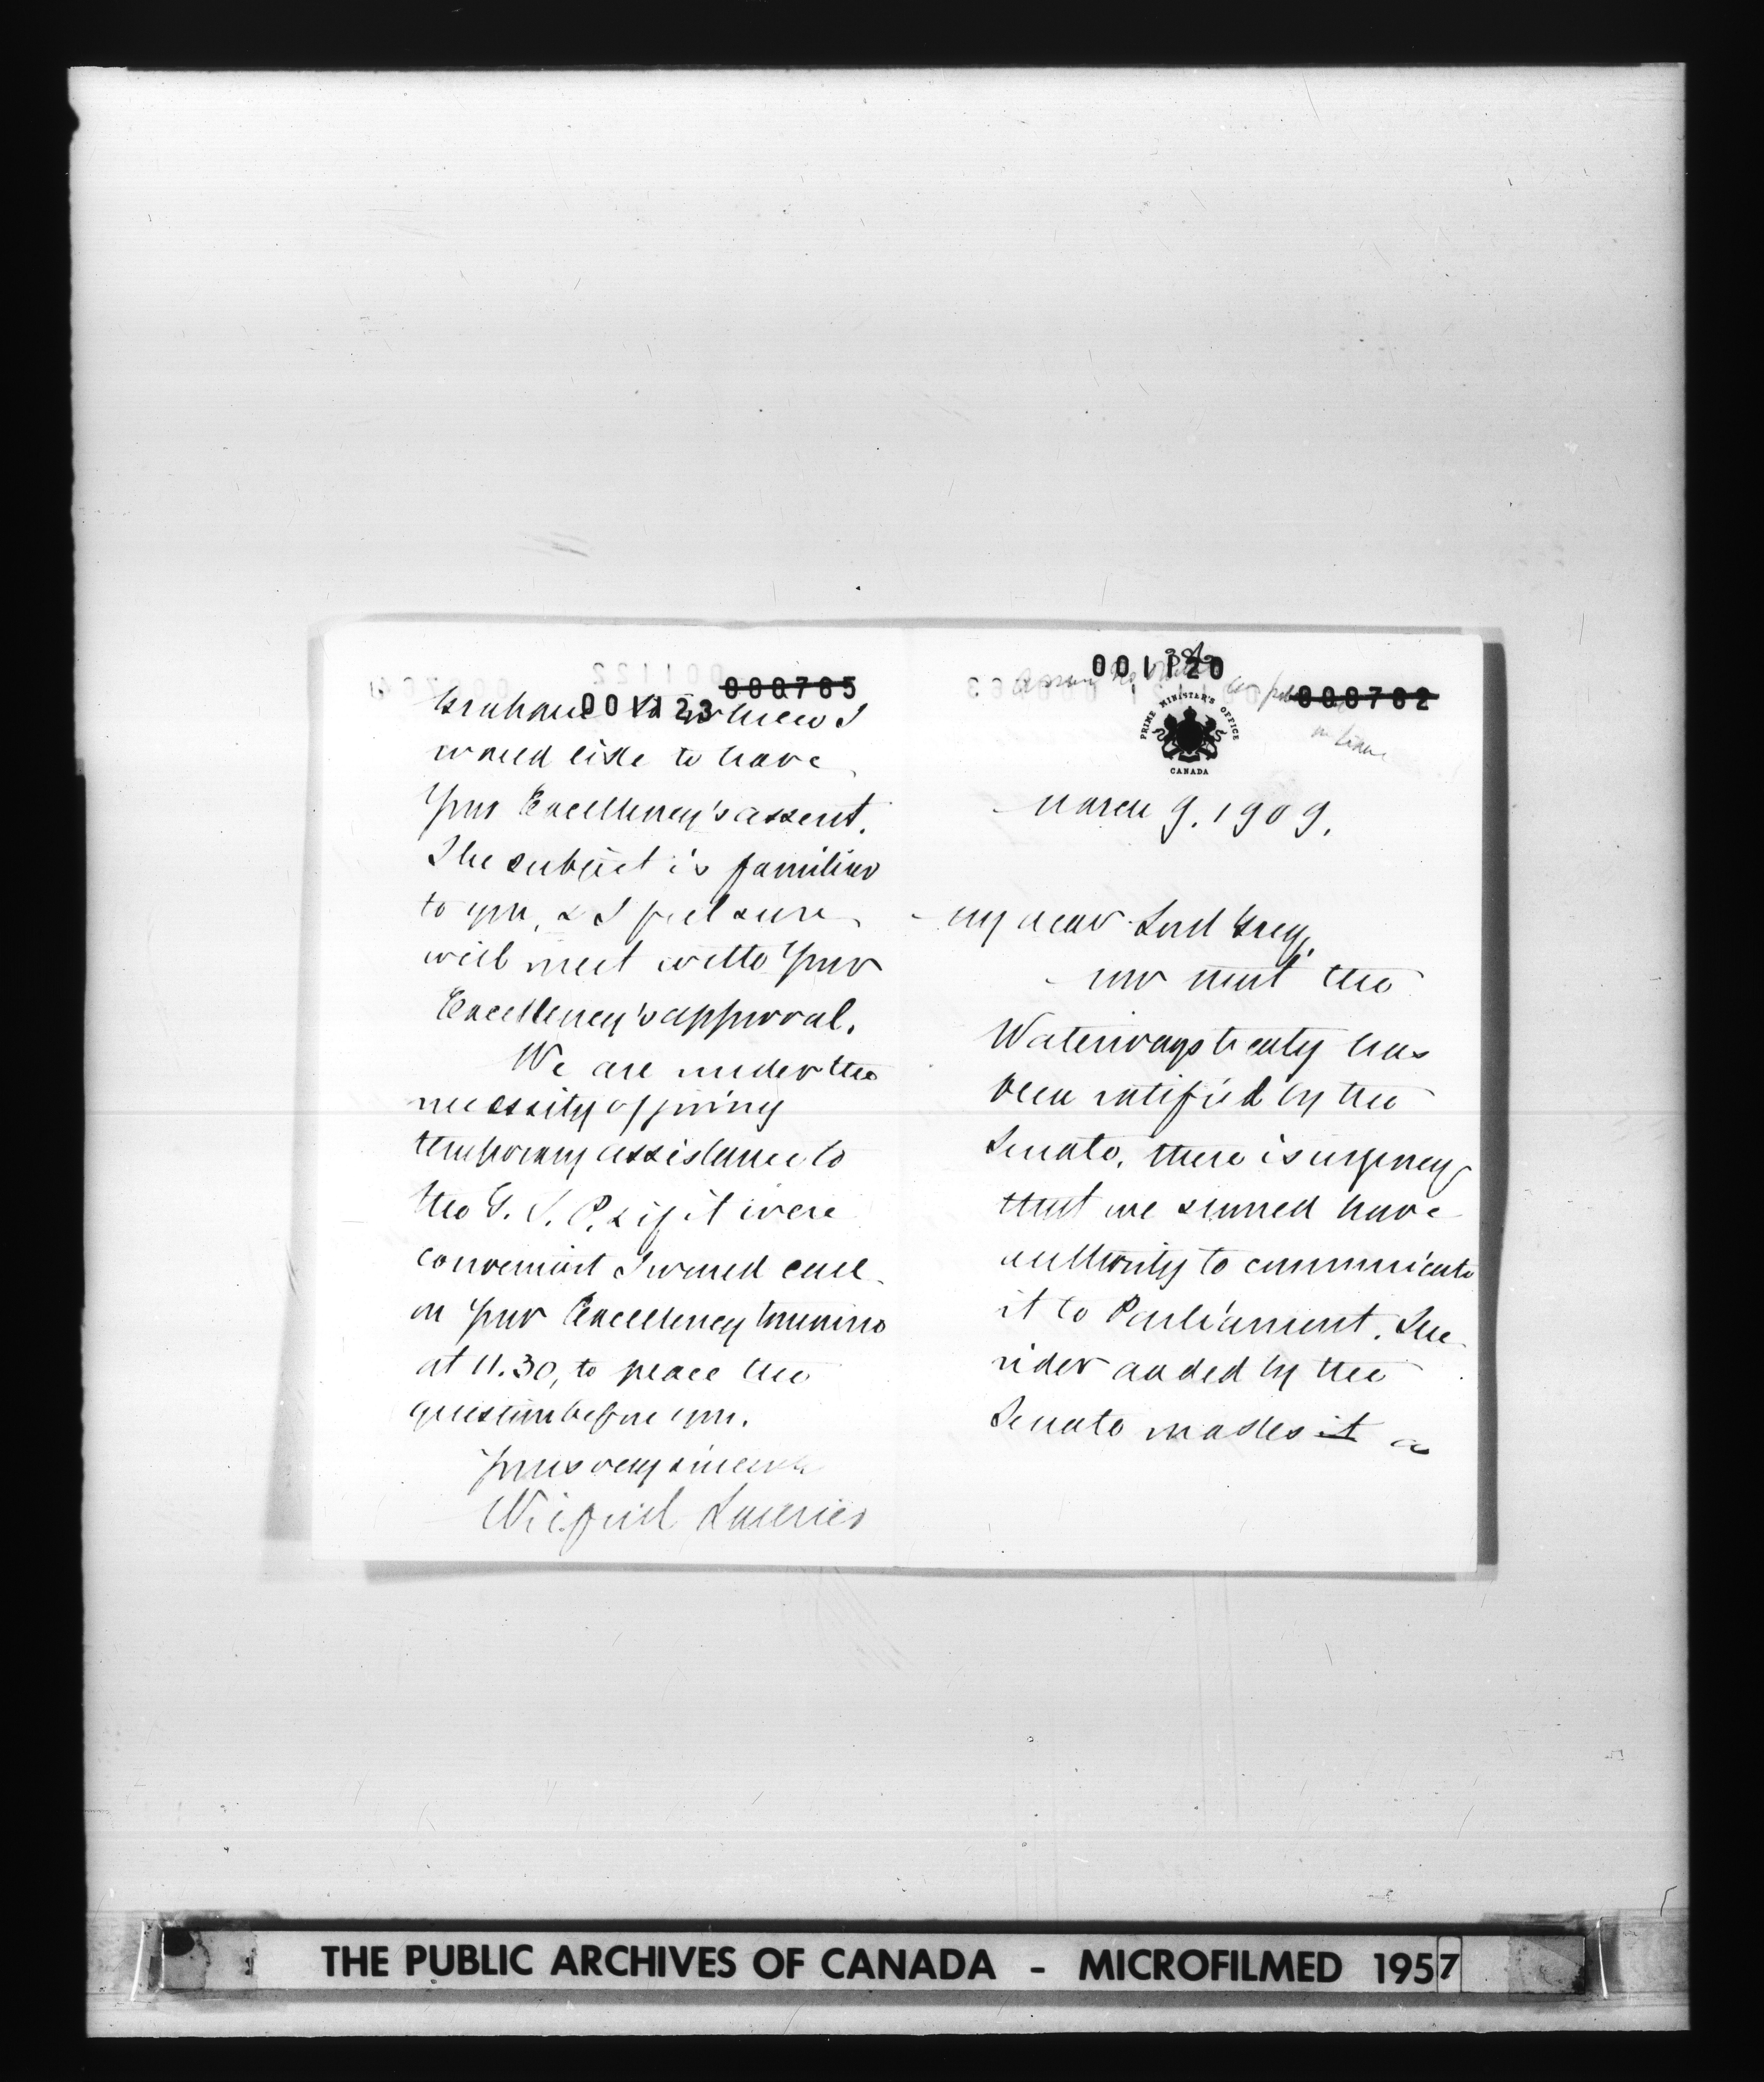 000765
001123
Graham to whom I
would like to have
Your Excellency's assent.
The subject is familiar
to you, & I feel sure
will meet with Your
Excellency's approval.
We are under the
necessity of giving
temporary assistance to
the G. T. P. & if it were
convenient I would call
on Your Excellency
at 11.30, to place the
question before you.
Yours very sincerely
Wilfrid Laurier
001120
000762
PRIME MINISTER'S OFFICE
CANADA
March 9. 1909.
My dear Lord Grey,
Now that the
Waterways treaty has
been ratified by the
Senate, there is urgency
that we should have
authority to communicate
it to Parliament. The
rider added by the
Senate makes it a
THE PUBLIC ARCHIVES OF CANADA - MICROFILMED 1957